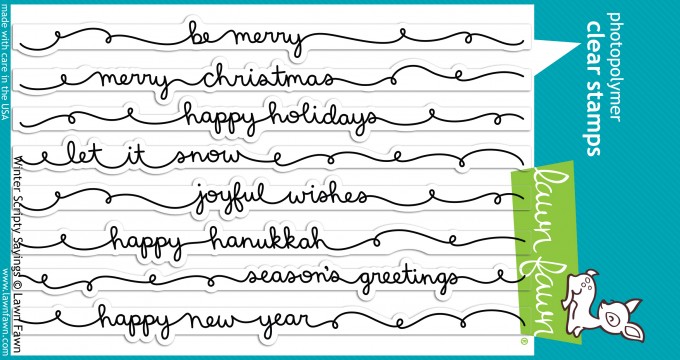 be merry
merry christmas
happy holidays
let it snow
joyful wishes
happy hanukkah
season's greetings
happy new year
made with care in the USA
Winter Scripty Sayings © Lawn Fawn
www.lawnfawn.com
photopolymer
clear stamps
lawn fawn
®